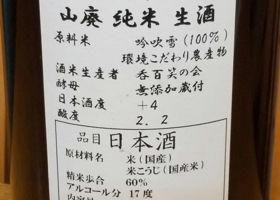 山廃 純米 生酒
原料米 吟吹雪(100%)
環境こだわり農産物
酒米生産者 呑百笑の会
酵母 無添加蔵付
日本酒度 +4
酸度 2.2
品目 日本酒
原材料名 米(国産)
米こうじ(国産米)
精米歩合 60%
アルコール分 17度
内容量